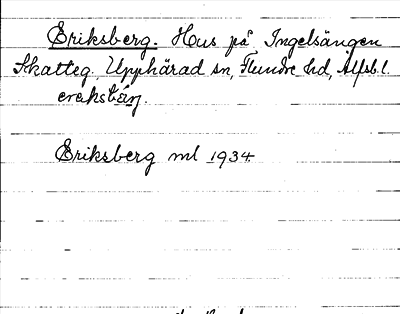 Eriksberg. Hus på Ingelsängen
Skatteg. Upphärad sn, Flundre hd, Älfsb.l.
Eriksberg ml 1934